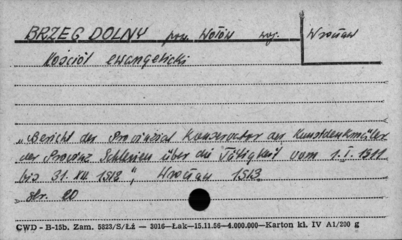 BRZEG DOLNY pow. Wołów woj. Wrocław
Kościół ewangelicki
„Bericht des Provinzial Konservator der Kunstdenkmäler
der Provinz Schlesien über die Tätigkeit vom 1.I.1911
bis 31.XII 1912", Wrocław 1913
str. 20
CWD - B-15b. Zam. 5823/S/Łź — 2016—Łak—15.11.56—4.000.000—Karton kl. IV A1/200 g